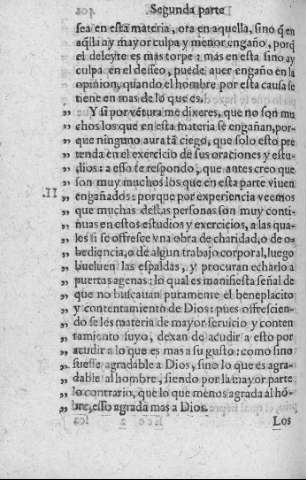 Segunda parte
sea en esta materia, ora en aquella, sino q̃ en
aq̃lla ay mayor culpa y menor engaño, porq̃
el deleyte es mas torpe: mas en esta sino ay
culpa en el desseo, puede auer engaño en la
opinion, quando el hombre por esta causa se
tiene en mas de lo que es.
„ Y si por vẽtura me dixeres, que no son mu
„ chos los que en esta materia se engañan, por-
„ que ninguno aura tã ciego, que solo esto pre
„ tenda en el exercicio de sus oraciones y estu-
„ dios: a esso te respondo, que antes creo que
„ son muy muchos los que en esta parte viuen
II. „ engañados: porque por experiencia veemos
„ que muchas destas personas son muy conti-
„ nuas en estos estudios y exercicios, a las qua-
„ les si se offresce vna obra de charidad, o de o-
„ bediencia, o de algun trabajo corporal, luego
„ bueluen las espaldas, y procuran echarlo a
„ puertas agenas: lo qual es manifiesta señal de
„ que no buscauan puramente el beneplacito
„ y contentamiento de Dios: pues offrescien-
„ do se les materia de mayor seruicio y conten
„ tamiento suyo, dexan de acudir a esto por
„ acudir a lo que es mas a su gusto: como sino
„ fuesse agradable a Dios, sino lo que es agra-
„ dable al hombre, siendo por la mayor parte
„ lo contrario, que lo que menos agrada al hõ-
„ bre, esso agrada mas a Dios.
Los